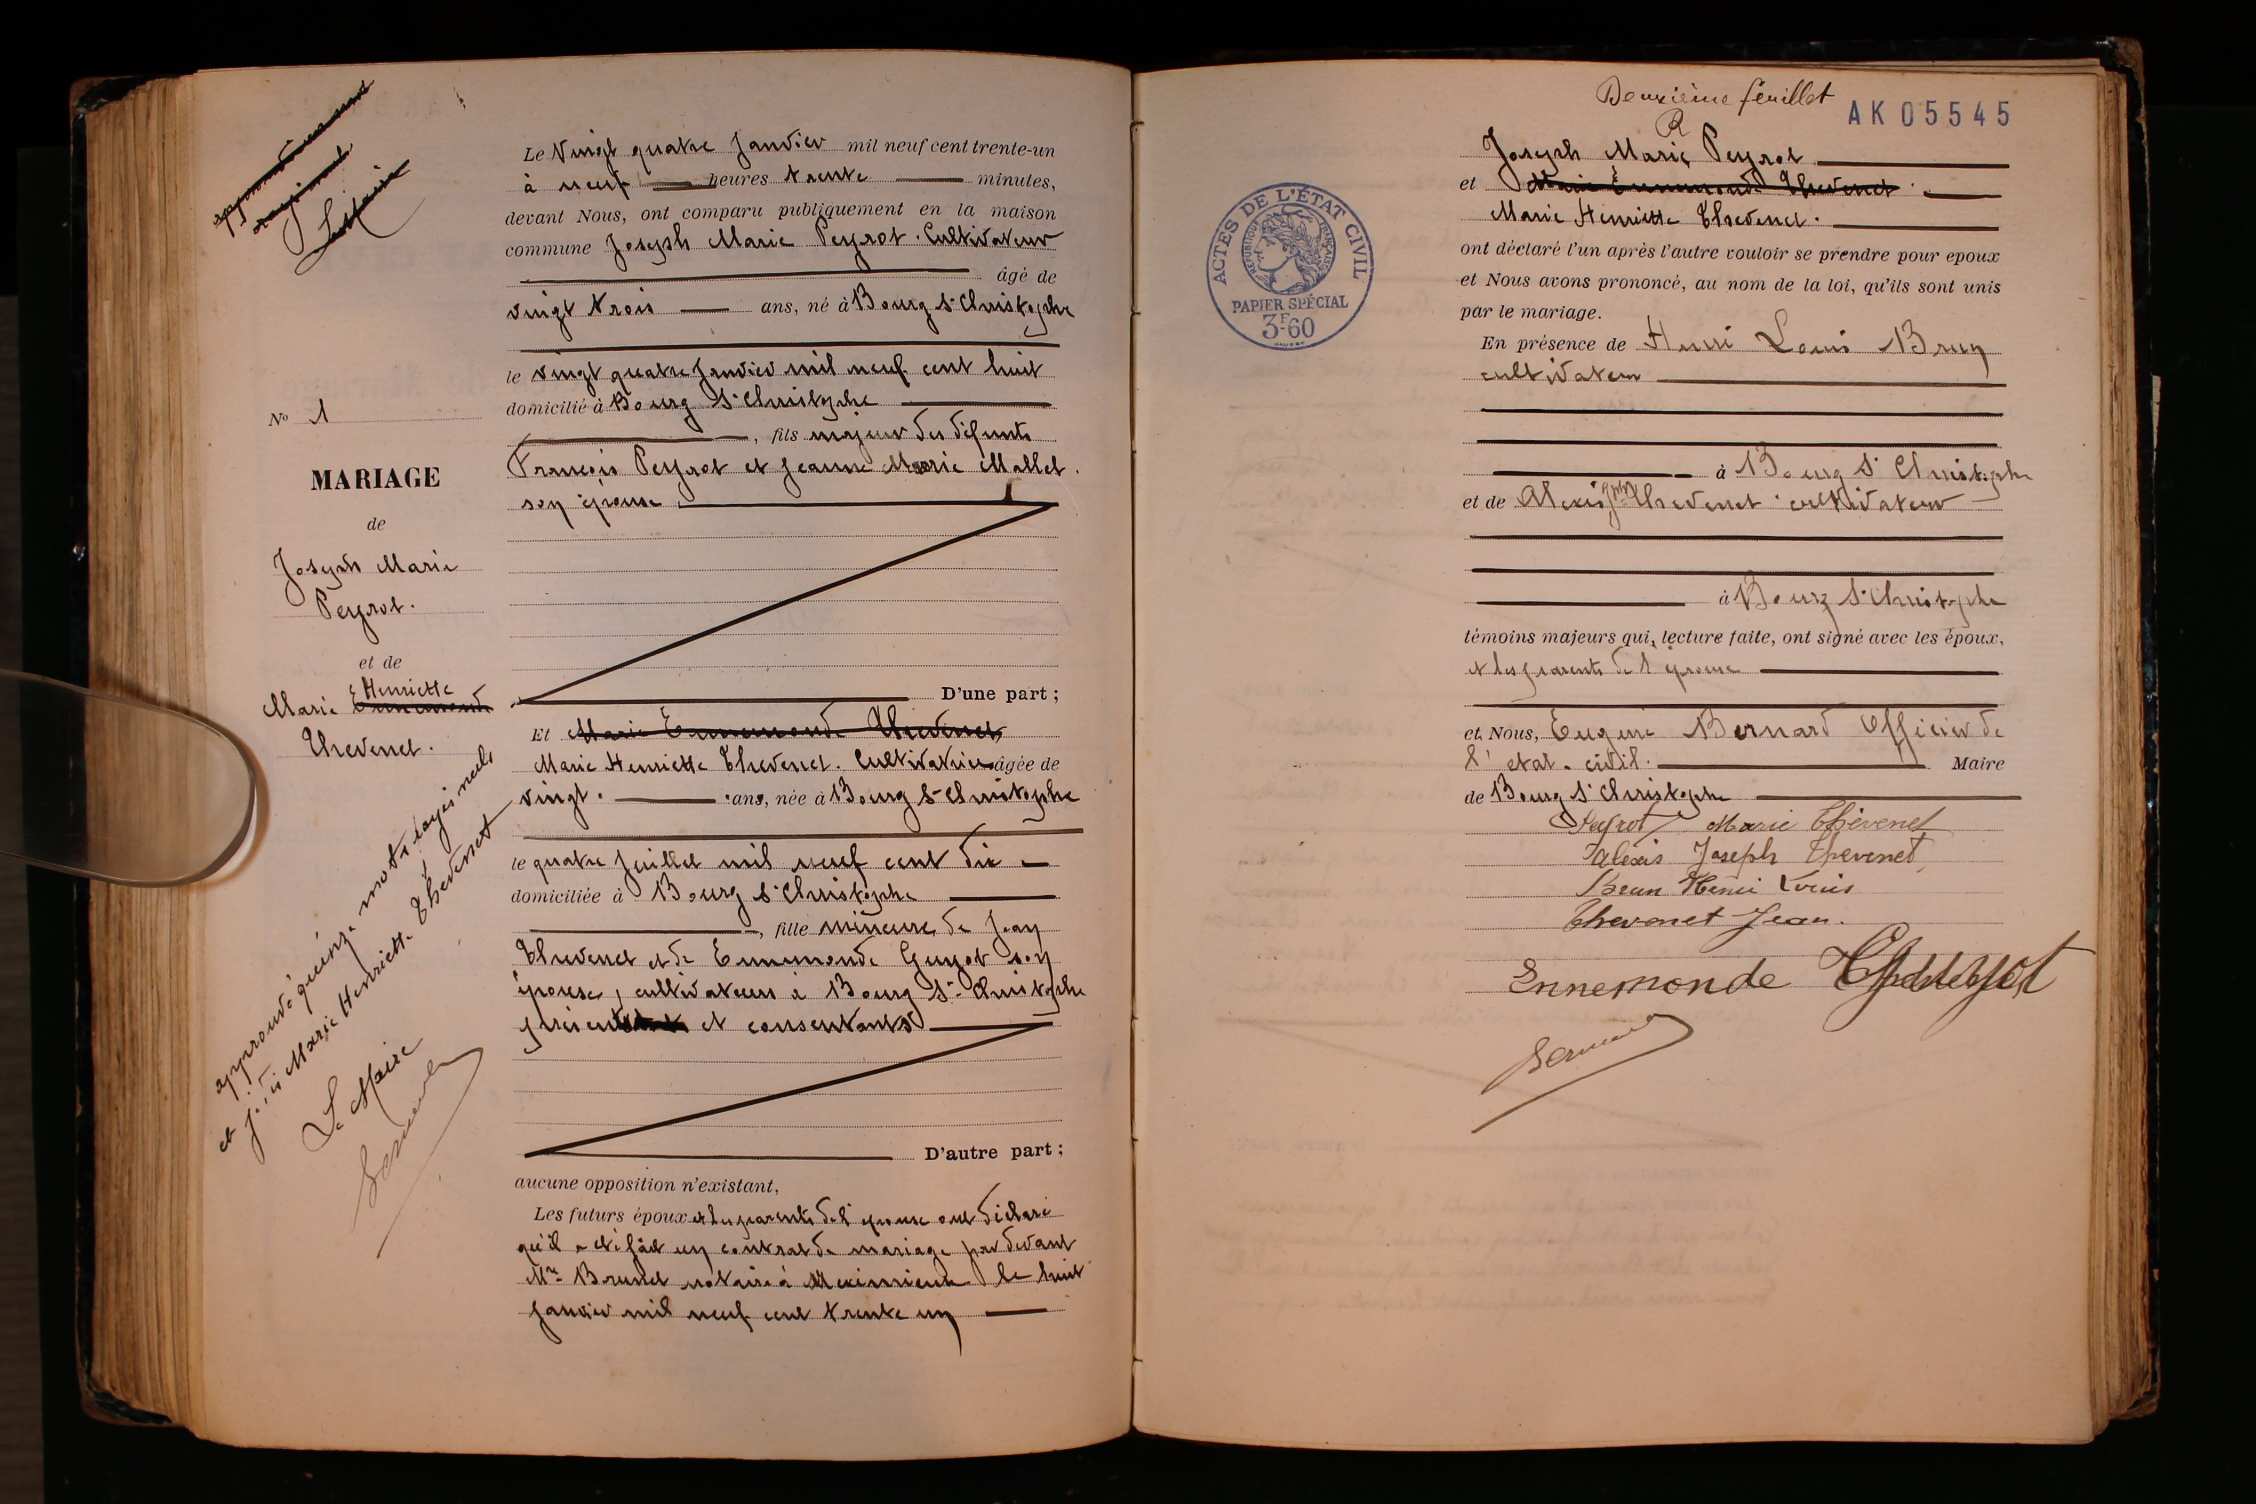 Le Vingt quatre Janvier mil neuf cent trente-un
à neuf heures trente minutes,
devant Nous, ont comparu publiquement en la maison
commune Joseph Marie Peyrot. Cultivateur
âgé de
vingt trois ans, né à Bourg St Christophe
le vingt quatre Janvier mil neuf cent huit
domicilié à Bourg St Christophe
, fils majeur des défunts
François Peyrot et Jeanne Marie Mallet.
son épouse
D'une part ;
Et Marie Ennemonde Thevenet
Marie Henriette Thevenet. Cultivatrice âgée de
vingt. ans, née à Bourg St Christophe
le quatre Juillet mil neuf cent dix
domiciliée à Bourg St Christophe
, fille mineure de Jean
Thevenet et de Ennemonde Guyot son
épouse, cultivateurs à Bourg St Christophe
présents et consentants
D'autre part ;
aucune opposition n'existant,
Les futurs époux et les parents de l'épouse ont déclaré
qu'il a été fait un contrat de mariage par devant
Me Brunet notaire à Meximieux le huit
Janvier mil neuf cent trente un
Le Maire
No 1
MARIAGE
de
Joseph Marie
Peyrot.
et de
Henriette
Marie Ennemonde
Thevenet.
approuvé quinze mots rayés nuls
et Marie Henriette Thevenet
Le Maire
Bernard
Deuxième feuillet
AK 05545
R
Joseph Marie Peyrot
et Marie Ennemonde Thevenet.
Marie Henriette Thevenet.
ont déclaré l'un après l'autre vouloir se prendre pour epoux
et Nous avons prononcé, au nom de la loi, qu'ils sont unis
par le mariage.
En présence de Henri Louis Brun
cultivateur
à Bourg St Christophe
et de Alexis Jph Thevenet. cultivateur
à Bourg St Christophe
témoins majeurs qui, lecture faite, ont signé avec les époux,
et les parents de l'épouse
et Nous, Eugène Bernard Officier de
l'etat-civil. Maire
de Bourg St Christophe
Peyrot Marie Thévenet
Alexis Joseph Thevenet
Brun Henri Louis
Thevenet Jean.
Ennemonde Guyot
Bernard
ACTES DE L'ÉTAT CIVIL
RÉPUBLIQUE FRANÇAISE
PAPIER SPÉCIAL
3F60